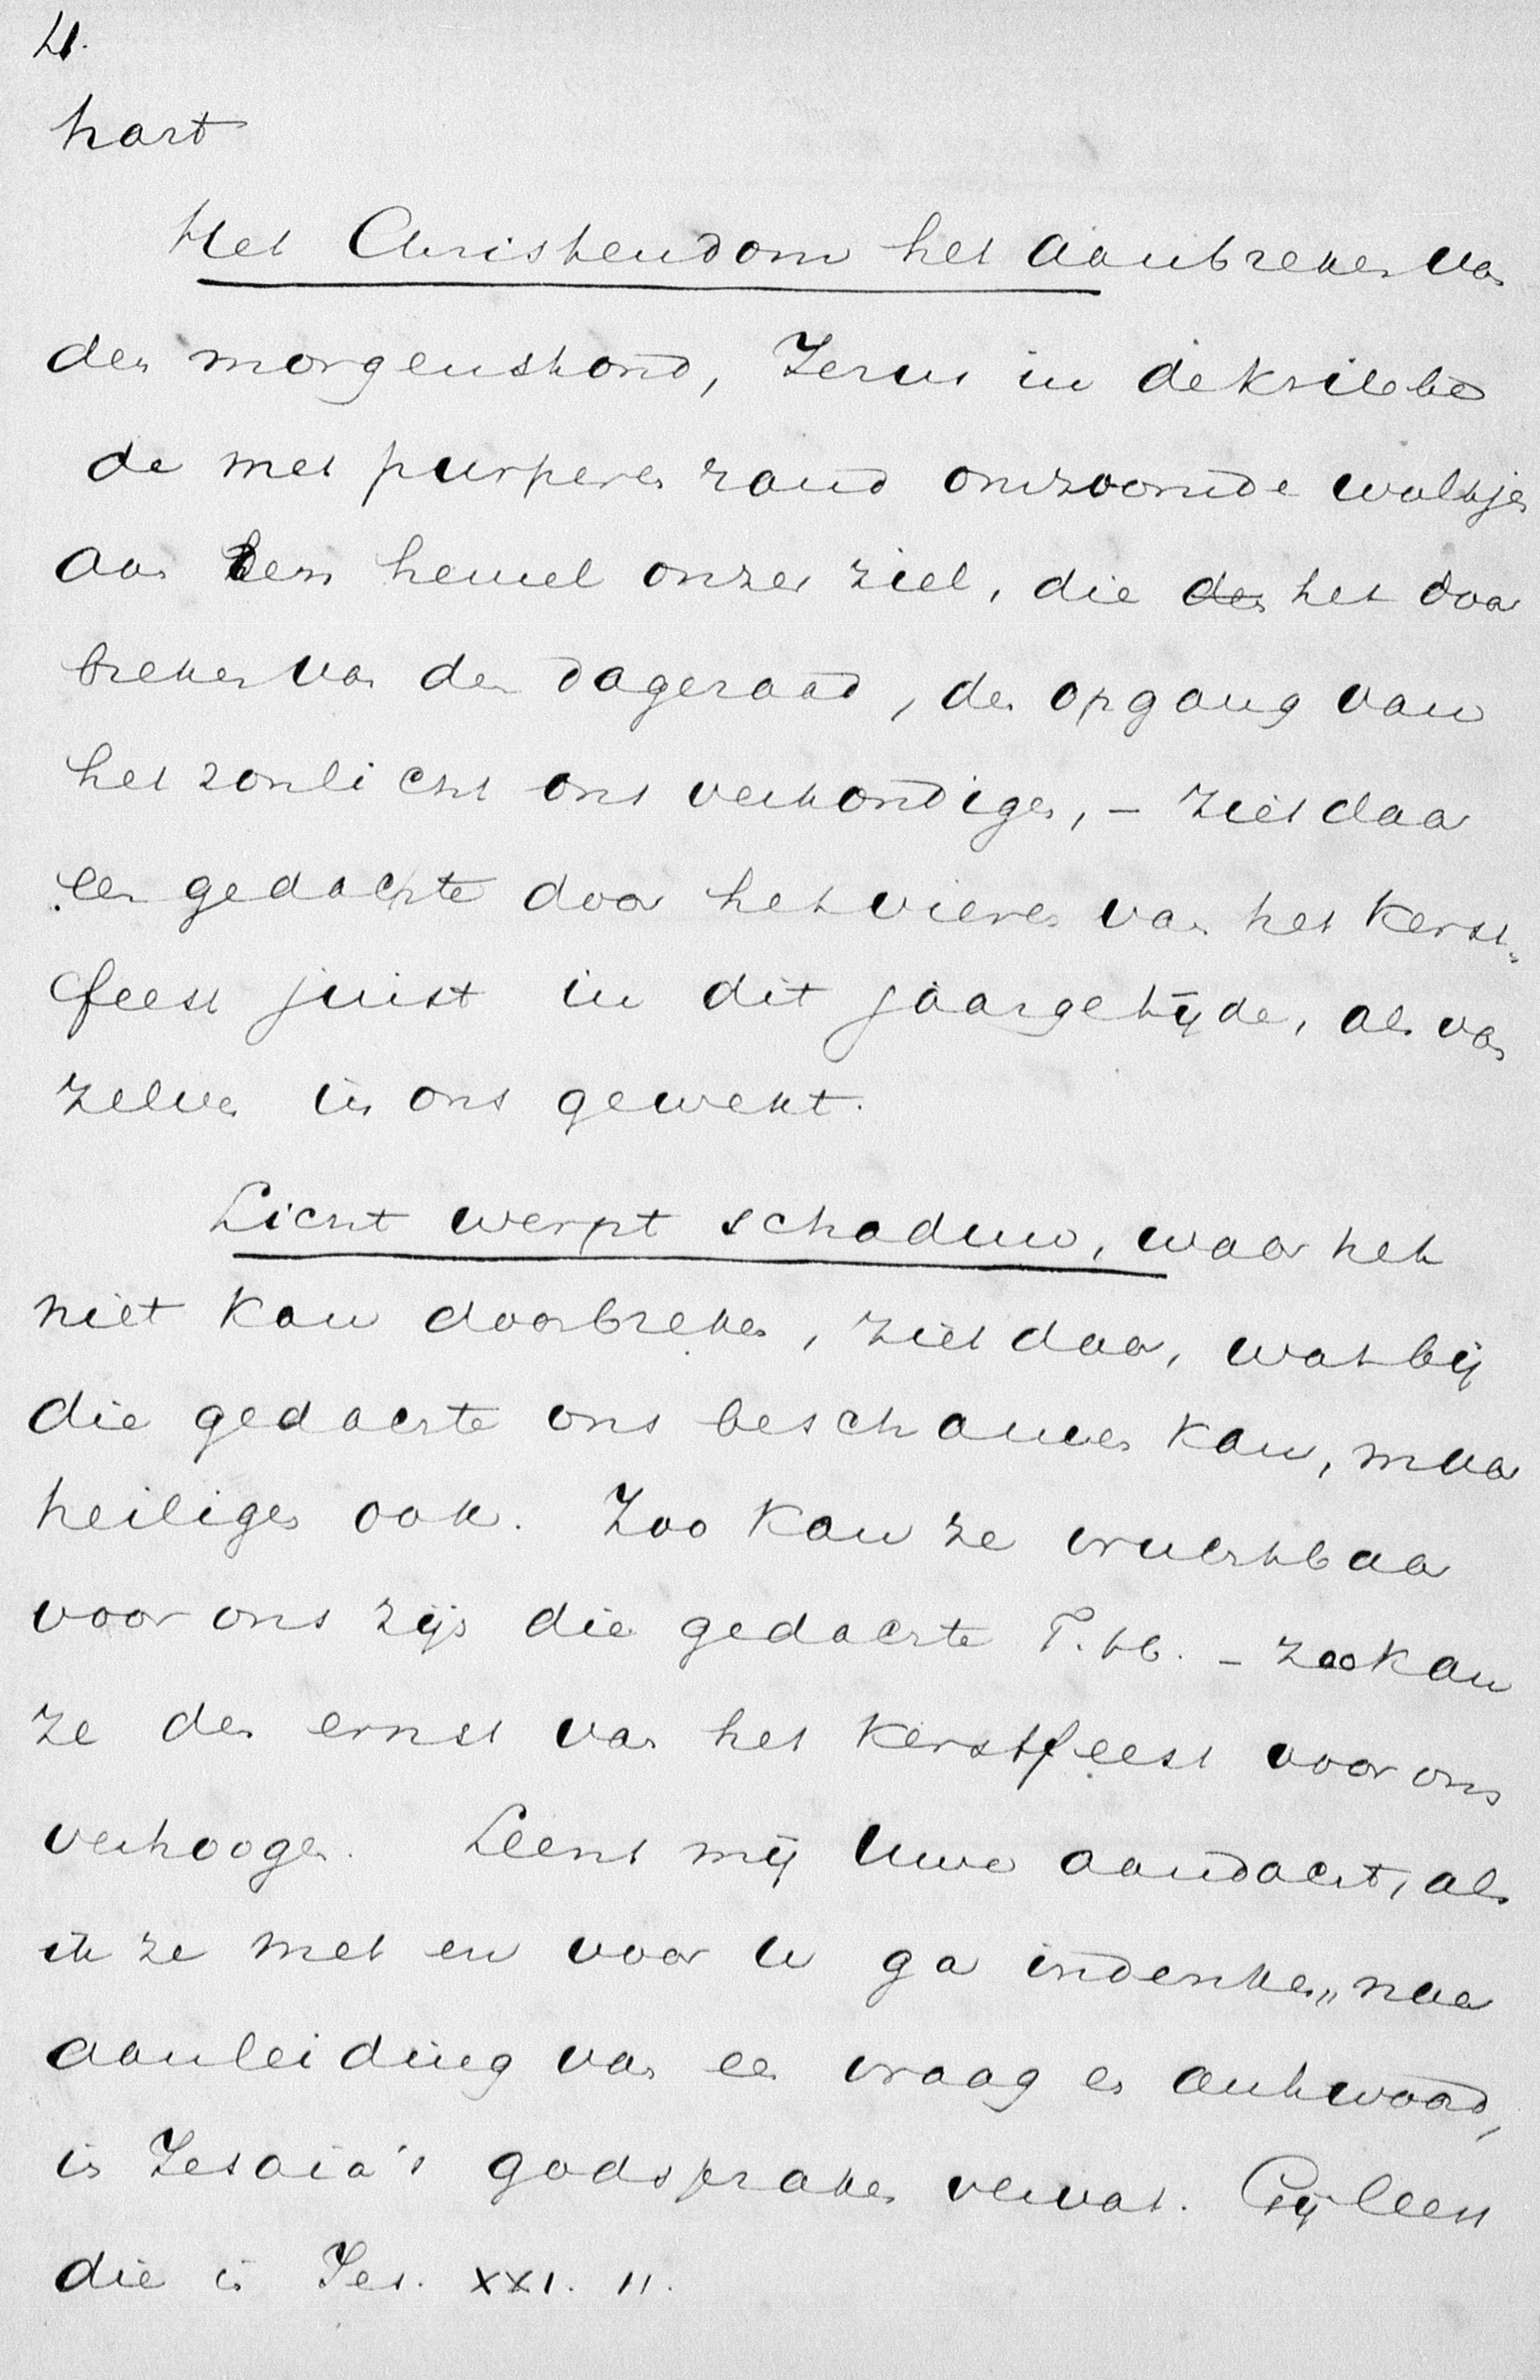 4.
hart
Het Christendom het aanbreken van
den morgenstond, Jezus in de kribbe
de met purperen rand omzoomde wolkjes
aan den hemel onzer ziel, die den het door
breken van den dageraad, den opgang van
het zonlicht ons verkondigen, – ziet daar
een gedachte door het vieren van het Kerst=
feest juist in dit jaargetijde, als van
zelven in ons gewekt.
Licht werpt schaduw, waar het
niet kan doorbreken, ziet daar, wat bij
die gedachte ons beschamen kan, maar
heiligen ook. Zoo kan ze vruchtbaar
voor ons zijn die gedachte T.hh. – zoo kan
ze den ernst van het Kerstfeest voor ons
verhoogen. Leent mij Uwe aandacht, als
ik ze met en voor U ga indenken, naar
aanleiding van een vraag en antwoord,
in Jesaia's godspraken vervat. Gij leest
die in Jes. XXI. 11.